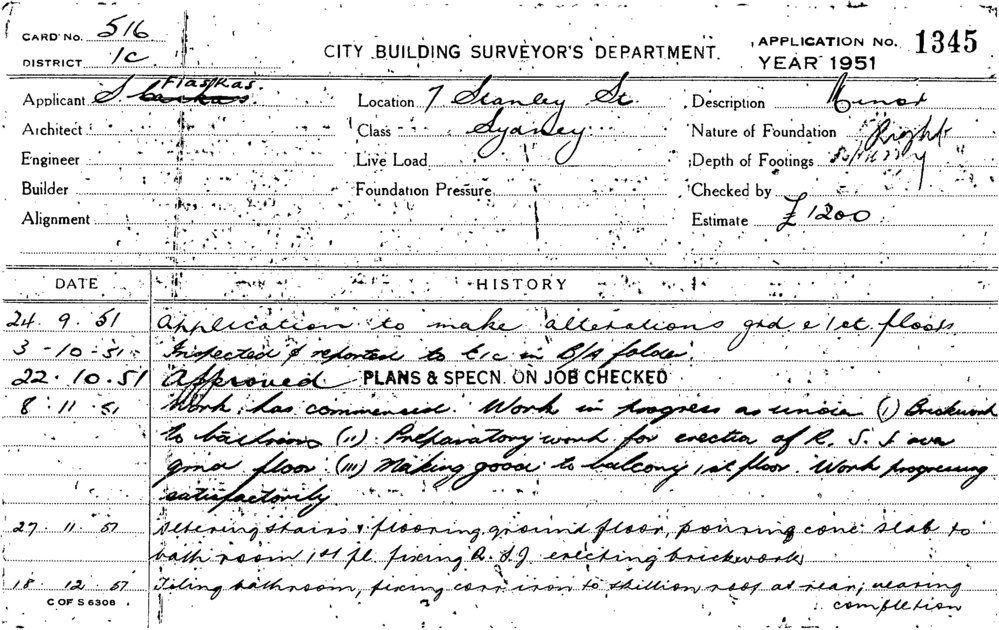 CARD No. 516
DISTRICT 1C
CITY BUILDING SURVEYOR'S DEPARTMENT.
APPLICATION No. 1345
YEAR 1951
Flaskas.
Applicant S.
Location 7 Stanley St
Description Minor
Architect
Class Sydney
Nature of Foundation Right
Engineer
Live Load
Depth of Footings
Builder
Foundation Pressure
Checked by
Alignment
Estimate £1200
DATE HISTORY
24. 9. 51 Application to make alterations grd & 1st floors
3-10-51 Inspected & reported to in B/A folder.
22. 10. 51 Approved PLANS & SPECN. ON JOB CHECKED
8. 11. 51 Work has commenced. Work in progress as under (I) Brickwork
to bathroom (II) Preparatory work for erection of R. S. J over
grnd floor (III) Making good to balcony 1st floor. Work progressing
satisfactorily
27. 11. 51 Altering stairs & flooring ground floor, pouring conc. slab to
bath room 1st fl. fixing R.S.J. erecting brickwork
18. 12. 51 Tiling bathroom, fixing corr iron to skillion roof at rear; nearing
completion
C OF S 6308